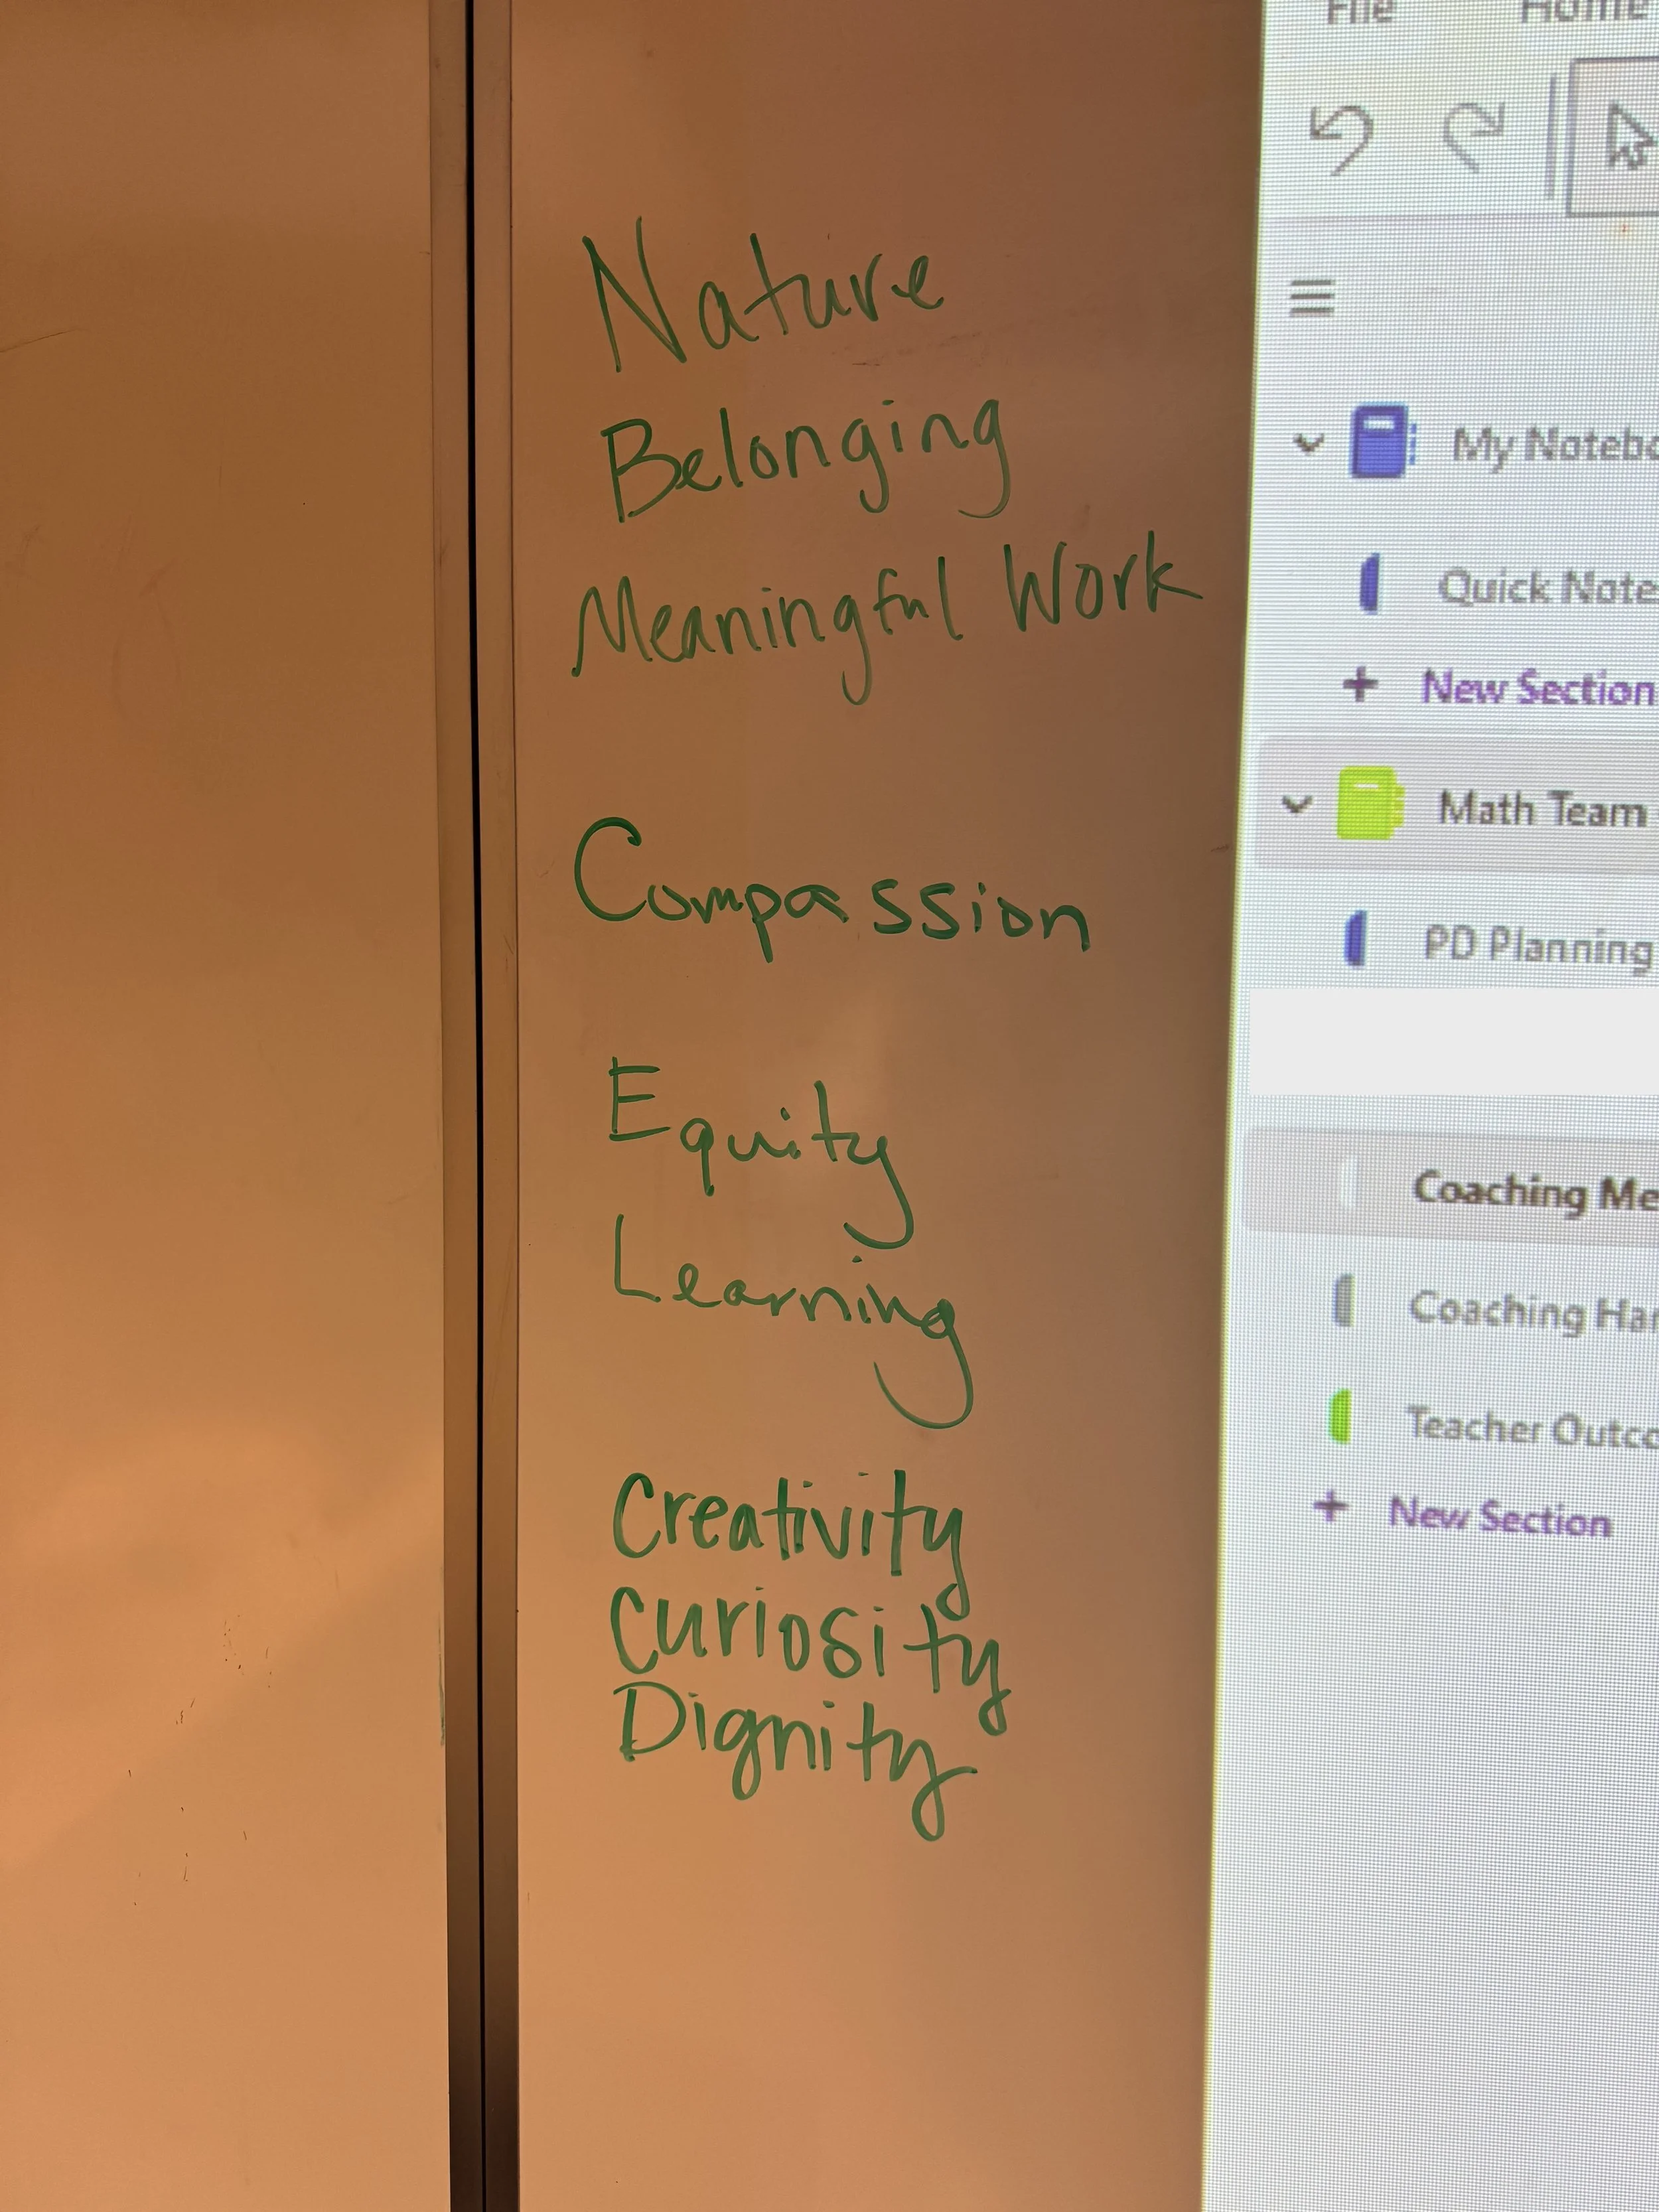 Nature
Belonging
Meaningful Work
Compassion
Equity
Learning
Creativity
Curiosity
Dignity
File Home
My Notebo
Quick Note
+ New Section
Math Team
PD Planning
Coaching Me
Coaching Han
Teacher Outco
+ New Section